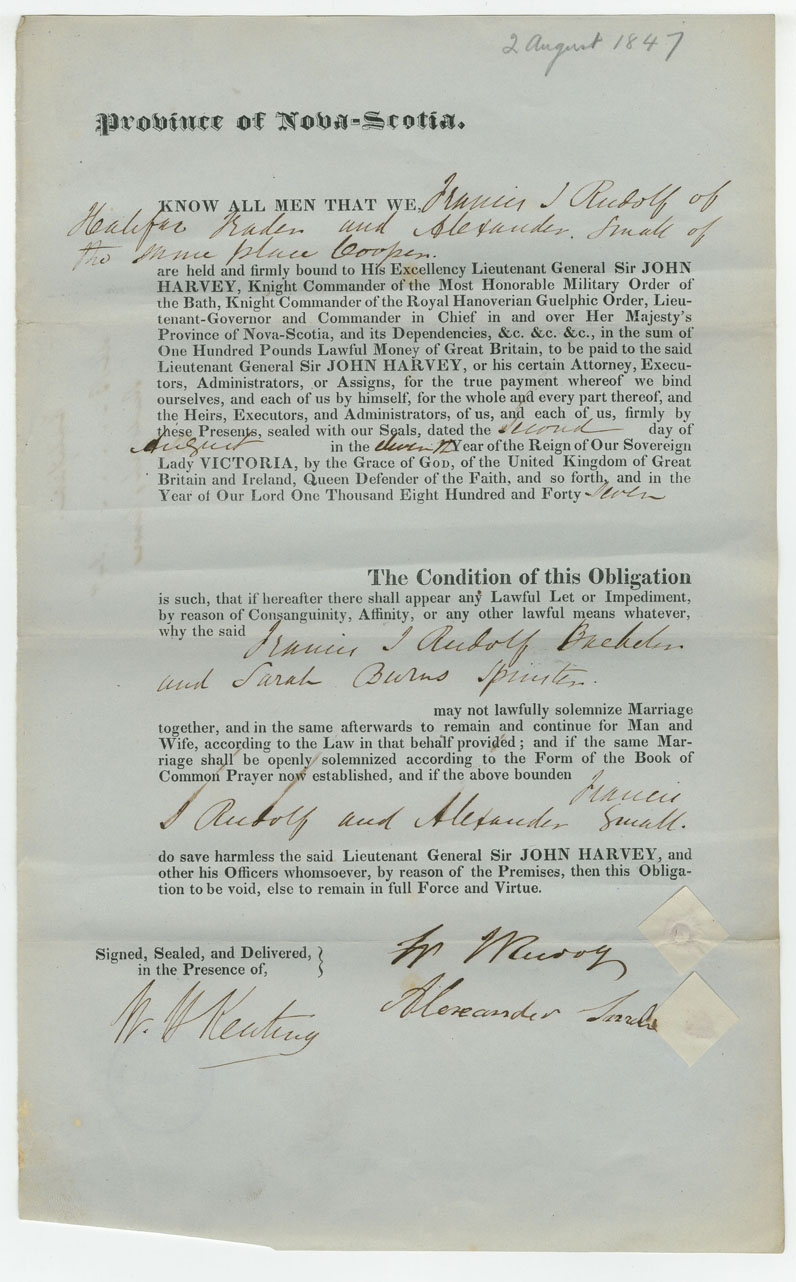 2 August 1847
Province of Nova-Scotia.
KNOW ALL MEN THAT WE, Francis J Rudolf of
Halifax Trader and Alexander Small of
the same place Cooper.
are held and firmly bound to His Excellency Lieutenant General Sir JOHN
HARVEY, Knight Commander of the Most Honorable Military Order of
the Bath, Knight Commander of the Royal Hanoverian Guelphic Order, Lieu-
tenant-Governor and Commander in Chief in and over Her Majesty's
Province of Nova-Scotia, and its Dependencies, &c. &c. &c., in the sum of
One Hundred Pounds Lawful Money of Great Britain, to be paid to the said
Lieutenant General Sir JOHN HARVEY, or his certain Attorney, Execu-
tors, Administrators, or Assigns, for the true payment whereof we bind
ourselves, and each of us by himself, for the whole and every part thereof, and
the Heirs, Executors, and Administrators, of us, and each of us, firmly by
these Presents, sealed with our Seals, dated the second day of
August in the Year of the Reign of Our Sovereign
Lady VICTORIA, by the Grace of GOD, of the United Kingdom of Great
Britain and Ireland, Queen Defender of the Faith, and so forth, and in the
Year of Our Lord One Thousand Eight Hundred and Forty-Seven
The Condition of this Obligation
is such, that if hereafter there shall appear any Lawful Let or Impediment,
by reason of Consanguinity, Affinity, or any other lawful means whatever,
why the said Francis J Rudolf Bachelor
and Sarah Burns Spinster.
may not lawfully solemnize Marriage
together, and in the same afterwards to remain and continue for Man and
Wife, according to the Law in that behalf provided; and if the same Mar-
riage shall be openly solemnized according to the Form of the Book of
Common Prayer now established, and if the above bounden Francis
J Rudolf and Alexander Small.
do save harmless the said Lieutenant General Sir JOHN HARVEY, and
other his Officers whomsoever, by reason of the Premises, then this Obliga-
tion to be void, else to remain in full Force and Virtue.
Signed, Sealed, and Delivered,
in the Presence of,
W. H Keating
Alexander Small